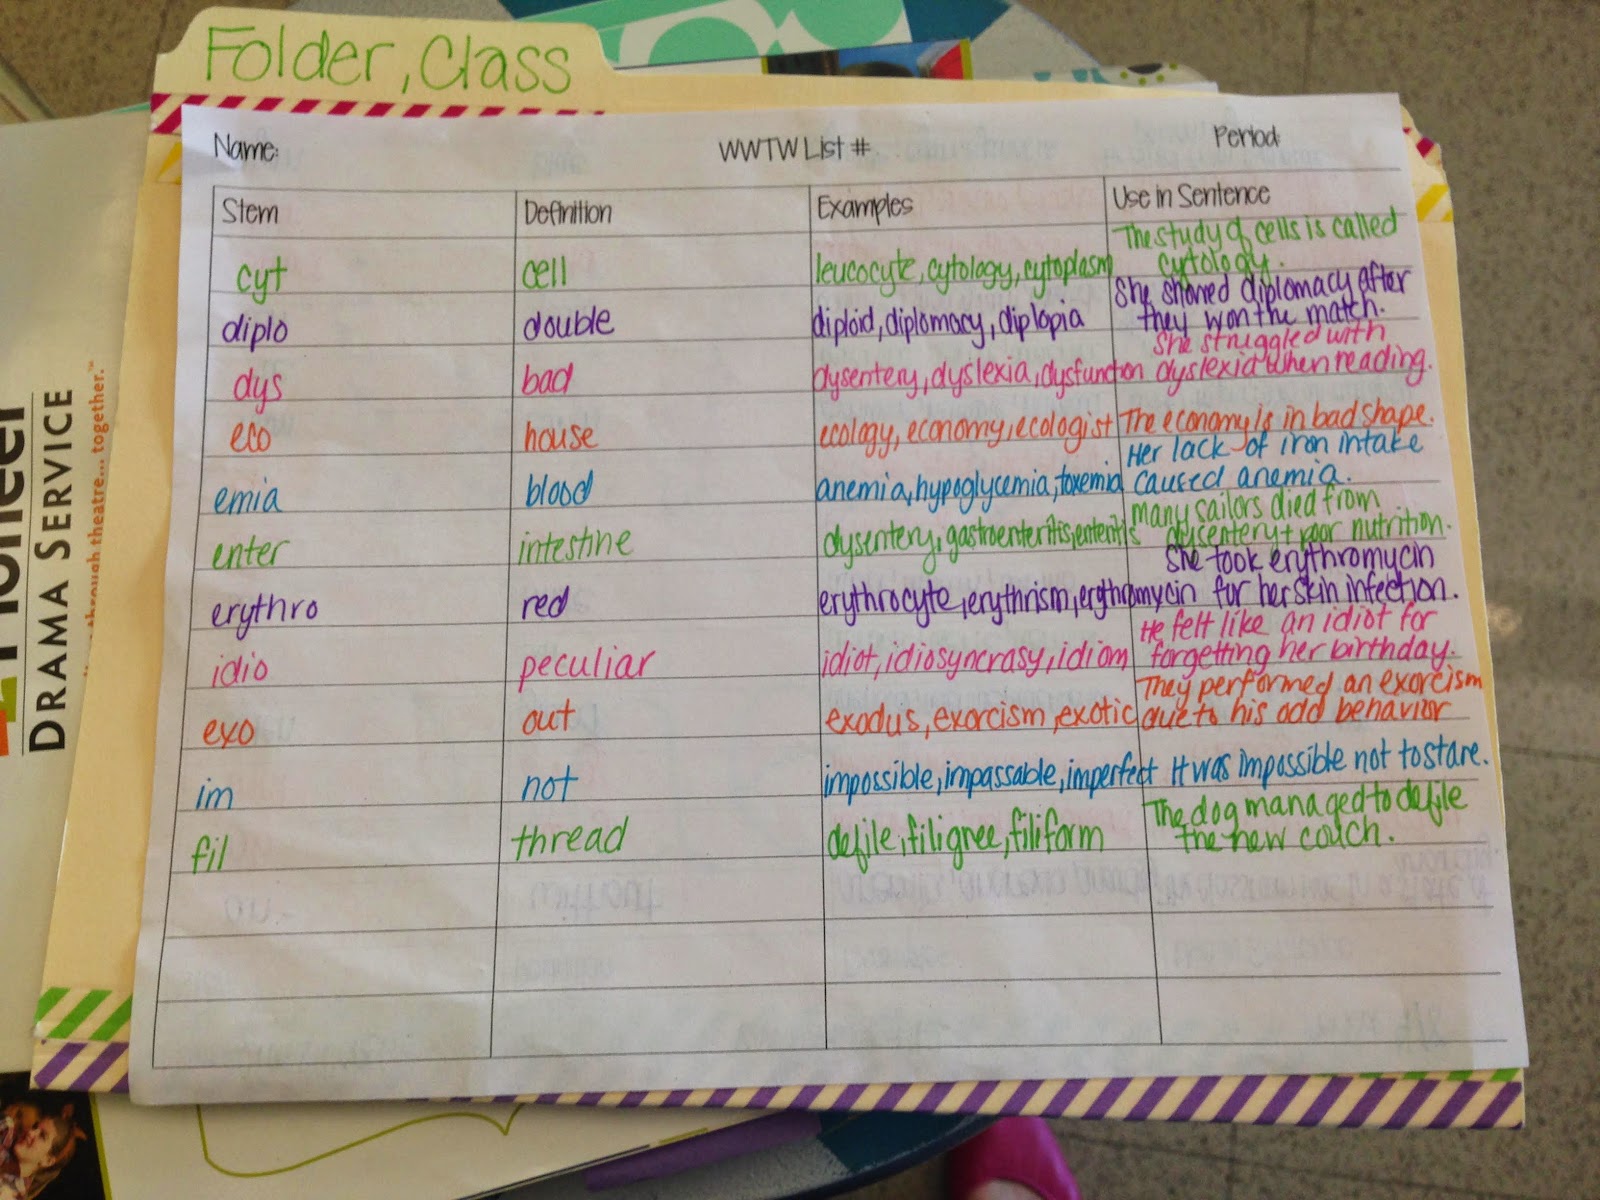 Folder, Class
Name:
WWTW List #
Period:
Stem
Definition
Examples
Use in Sentence
cyt
cell
leucocyte, cytology, cytoplasm
The study of cells is called
cytology.
diplo
double
diploid, diplomacy, diplopia
She showed diplomacy after
they won the match.
dys
bad
dysentery, dyslexia, dysfunction
She struggled with
dyslexia when reading.
eco
house
ecology, economy, ecologist
The economy is in bad shape.
emia
blood
anemia, hypoglycemia, toxemia
Her lack of iron intake
caused anemia.
enter
intestine
dysentery, gastroenteritis, enteritis
many sailors died from
dysentery + poor nutrition.
erythro
red
erythrocyte, erythrism, erythromycin
She took erythromycin
for her skin infection.
idio
peculiar
idiot, idiosyncrasy, idiom
He felt like an idiot for
forgetting her birthday.
exo
out
exodus, exorcism, exotic
They performed an exorcism
due to his odd behavior
im
not
impossible, impassable, imperfect
It was impossible not to stare.
fil
thread
defile, filigree, filiform
The dog managed to defile
the new couch.
DRAMA SERVICE
through theatre... together.™